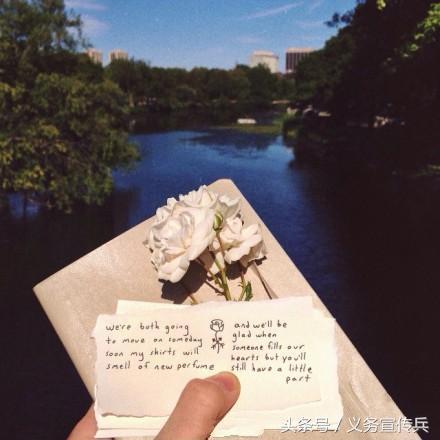 we're both going
to move on someday
soon my shirts will
smell of new perfume
and we'll be
glad when
someone fills our
hearts but you'll
still have a little
part
头条号 / 义务宣传兵